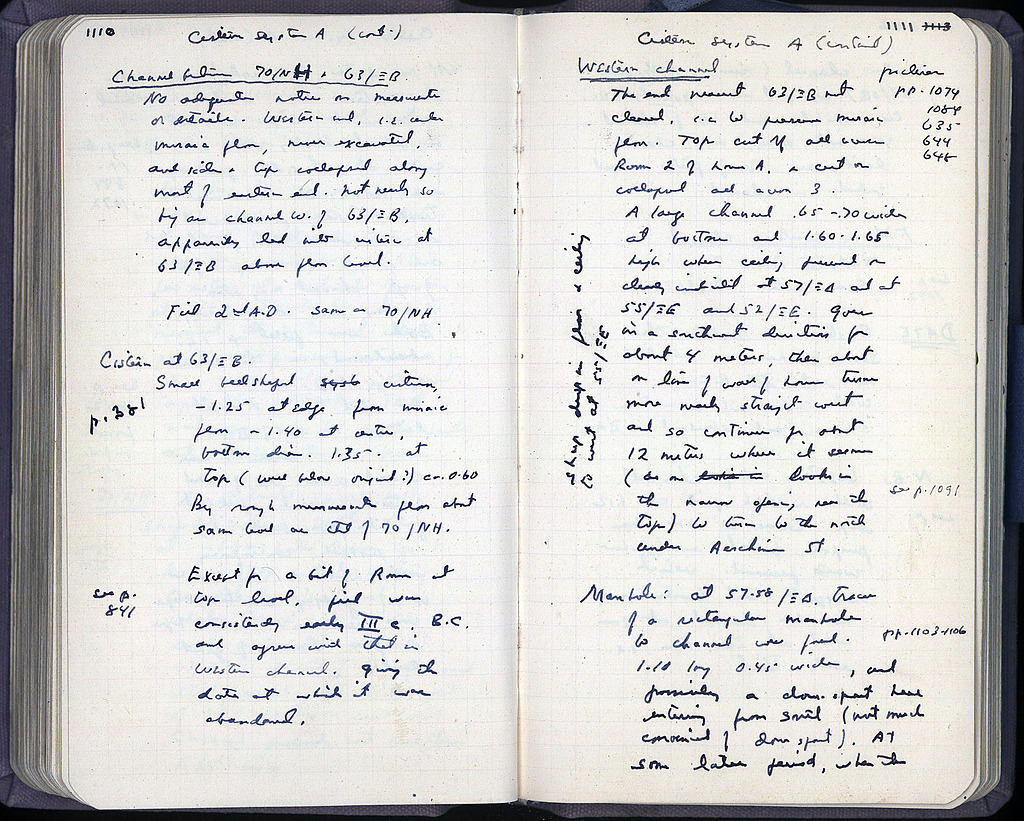 1110
Cistern System A (cont.)
Channel between 70/NH & 63/ΞB.
No adequate notes or measurements
or details. Western end, i.e. under
mosaic floor, never excavated,
and sides & top collapsed along
most of eastern end. Not nearly so
big as channel W. of 63/ΞB,
apparently led into cistern at
63/ΞB above floor level.
Fill 2nd A.D. same as 70/NH
Cistern at 63/ΞB.
Small bell shaped cistern,
p. 381
-1.25 at edge, from mosaic
floor -1.40 at centre,
bottom diam. 1.35. at
top (well below original?) ca. 0.60
By rough measurements floor about
same level as that of 70/NH.
Except for a bit of Roman at
see p. 841
top level, fill was
consistently early III c. B.C.
and agrees with that in
Western channel. Giving the
date at which it was
abandoned.
1111 1113
Cistern System A (contind)
Western channel
picture
pp. 1079
1084
635
644
645
The end nearest 63/ΞB not
cleared, i.e. to preserve mosaic
floor. Top cut off all under
Room 2 of House A, & cut or
collapsed all across 3.
A large channel .65-.70 wide
at bottom and 1.60-1.65
high where ceiling preserved or
clearly indicated at 57/ΞΔ and at
55/ΞE and 52/ΞE. Goes
in a southwest direction for
about 4 meters, then about
on line of wall of house turns
more nearly straight west
and so continues for about
12 meters where it seems
(as one looks in looks in
see p. 1091
the narrow opening near the
top) to turn to the north
under Aeschines St
sharp drop in floor & ceiling
to west at 55/ΞE
Manhole: at 57-58/ΞΔ, traces
of a rectangular manhole
pp. 1103-1106
to channel were found.
1.10 long 0.45 wide, and
possibly a down-spout here
entering from south (not much
convinced of down spout). At
some later period, when the